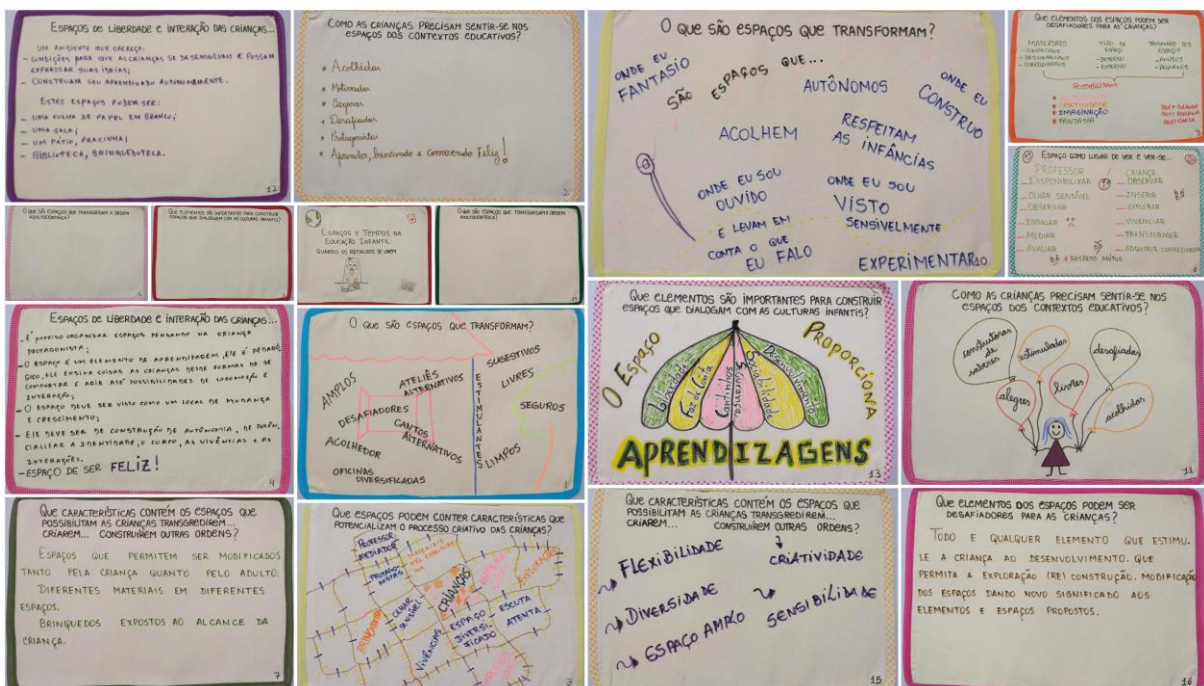 ESPAÇOS DE LIBERDADE E INTERAÇÃO DAS CRIANÇAS...
UM AMBIENTE QUE OFEREÇA:
- CONDIÇÕES PARA QUE AS CRIANÇAS SE DESENVOLVAM E POSSAM
EXPRESSAR SUAS IDEIAS;
- CONSTRUAM SEU APRENDIZADO AUTONOMAMENTE.
ESTES ESPAÇOS PODEM SER:
- UMA FOLHA DE PAPEL EM BRANCO;
- UMA SALA;
- UM PÁTIO, PRACINHA;
- BIBLIOTECA, BRINQUEDOTECA.
12
COMO AS CRIANÇAS PRECISAM SENTIR-SE NOS
ESPAÇOS DOS CONTEXTOS EDUCATIVOS?
* Acolhidas
* Motivadas
* Seguras
* Desafiadas
* Protagonistas
* Aprender, brincando e convivendo Feliz!
O QUE SÃO ESPAÇOS QUE TRANSFORMAM?
ONDE EU
FANTASIO
SÃO ESPAÇOS QUE...
AUTÔNOMOS
ONDE EU
CONSTRUO
ACOLHEM
RESPEITAM
AS INFÂNCIAS
ONDE EU SOU
OUVIDO
ONDE EU SOU
VISTO
SENSIVELMENTE
E LEVAM EM
CONTA O QUE
EU FALO
EXPERIMENTAR
10
QUE ELEMENTOS DOS ESPAÇOS PODEM SER
DESAFIADORES PARA AS CRIANÇAS?
MATERIAIS
TIPO DE
ESPAÇO
TAMANHO DOS
ESPAÇOS
- INTERNO
- EXTERNO
- AMPLOS
- PEQUENOS
POSSIBILITAM
* CRIATIVIDADE
* IMAGINAÇÃO
* FANTASIA
ESPAÇO COMO LUGAR DE VER E VER-SE...
PROFESSOR / CRIANÇA
- DISPONIBILIZAR
- OBSERVAR
- OLHAR SENSÍVEL
- INSERIR
- OBSERVAR
- EXPLORAR
- INDAGAR
- VIVENCIAR
- MEDIAR
- TRANSFORMAR
- AVALIAR
- ADQUIRIR CONHECIMENTO
RESPEITO MÚTUO
O QUE SÃO ESPAÇOS QUE TRANSGRIDAM A ORDEM
ADULTOCÊNTRICA?
QUE ELEMENTOS SÃO IMPORTANTES PARA CONSTRUIR
ESPAÇOS QUE DIALOGAM COM AS CULTURAS INFANTIS?
ESPAÇOS E TEMPOS NA
EDUCAÇÃO INFANTIL
QUANDO OS RETALHOS SE UNEM
O QUE SÃO ESPAÇOS QUE TRANSGRIDAM A ORDEM
ADULTOCÊNTRICA?
ESPAÇOS DE LIBERDADE E INTERAÇÃO DAS CRIANÇAS...
- É PRECISO ORGANIZAR ESPAÇOS PENSANDO NA CRIANÇA
PROTAGONISTA;
- O ESPAÇO É UM ELEMENTO DE APRENDIZAGEM, ELE É PEDAGÓ
GICO, ELE ENSINA COISAS ÀS CRIANÇAS DESDE FORMAS DE SE
COMPORTAR E AGIR ATÉ POSSIBILIDADES DE LOCOMOÇÃO E
INTERAÇÃO;
- O ESPAÇO DEVE SER VISTO COMO UM LOCAL DE MUDANÇA
E CRESCIMENTO;
- ELE DEVE SER DE CONSTRUÇÃO DE AUTONOMIA, DE POTEN
CIALIZAR A IDENTIDADE, O CORPO, AS VIVÊNCIAS E AS
INTERAÇÕES.
- ESPAÇO DE SER FELIZ!
4
O QUE SÃO ESPAÇOS QUE TRANSFORMAM?
AMPLOS
ATELIÊS
ALTERNATIVOS
DESAFIADORES
CANTOS
ALTERNATIVOS
ACOLHEDOR
OFICINAS
DIVERSIFICADAS
ESTIMULANTES
SUGESTIVOS
LIVRES
SEGUROS
LIMPOS
QUE ELEMENTOS SÃO IMPORTANTES PARA CONSTRUIR
ESPAÇOS QUE DIALOGAM COM AS CULTURAS INFANTIS?
O ESPAÇO
PROPORCIONA
Faz de Conta
Cantinhos
Sociabilidade
Desenvolvimento
APRENDIZAGENS
13
COMO AS CRIANÇAS PRECISAM SENTIR-SE NOS
ESPAÇOS DOS CONTEXTOS EDUCATIVOS?
construtoras
de
saberes
estimuladas
desafiadas
alegres
livres
acolhidas
11
QUE CARACTERÍSTICAS CONTÉM OS ESPAÇOS QUE
POSSIBILITAM AS CRIANÇAS TRANSGREDIREM...
CRIAREM... CONSTRUÍREM OUTRAS ORDENS?
ESPAÇOS QUE PERMITEM SER MODIFICADOS
TANTO PELA CRIANÇA QUANTO PELO ADULTO.
DIFERENTES MATERIAIS EM DIFERENTES
ESPAÇOS.
BRINQUEDOS EXPOSTOS AO ALCANCE DA
CRIANÇA.
7
QUE ESPAÇOS PODEM CONTER CARACTERÍSTICAS QUE
POTENCIALIZAM O PROCESSO CRIATIVO DAS CRIANÇAS?
PROFESSOR
MEDIADOR
PROTAGO-
NISTAS
CRIANÇAS
OLHAR
SENSÍVEL
VIVÊNCIAS
ESPAÇO
DIVERSI-
FICADO
ESCUTA
ATENTA
QUE CARACTERÍSTICAS CONTÉM OS ESPAÇOS QUE
POSSIBILITAM AS CRIANÇAS TRANSGREDIREM...
CRIAREM... CONSTRUÍREM OUTRAS ORDENS?
FLEXIBILIDADE
CRIATIVIDADE
DIVERSIDADE
SENSIBILIDADE
ESPAÇO AMPLO
15
QUE ELEMENTOS DOS ESPAÇOS PODEM SER
DESAFIADORES PARA AS CRIANÇAS?
TODO E QUALQUER ELEMENTO QUE ESTIMU-
LE A CRIANÇA AO DESENVOLVIMENTO. QUE
PERMITA A EXPLORAÇÃO (RE) CONSTRUÇÃO, MODIFICAÇÃO
DOS ESPAÇOS DANDO NOVO SIGNIFICADO AOS
ELEMENTOS E ESPAÇOS PROPOSTOS.
16